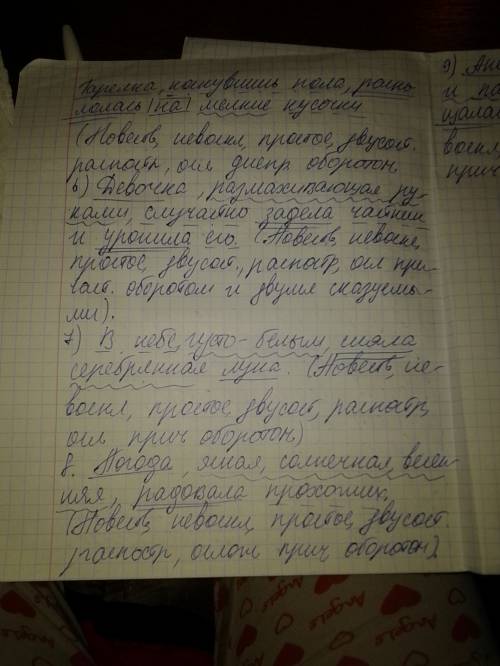 Тарелка, коснувшись пола, раско
лолась на мелкие кусочки
(Повеств, невоскл, простое, двусост.
распостр, осл деепр. оборотом.
6) Девочка, размахивающая ру-
ками, случайно задела чайник
и уронила его. (Повеств, невоскл,
простое, двусост., распостр, осл при-
част. оборотом и двумя сказуемы-
ми).
7) В небе, густо-белым, сияла
серебрянная луна. (Повеств, не-
воскл, простое, двусост, распостр,
осл прич оборотом)
8. Погода, ясная, солнечная, весен-
няя, радовала прохожих,
(Повеств, невоскл, простое, двусост.
распостр, ослож прич оборотом)
9)
и
воскл,
прич
Angelo
Angelo
Angelo